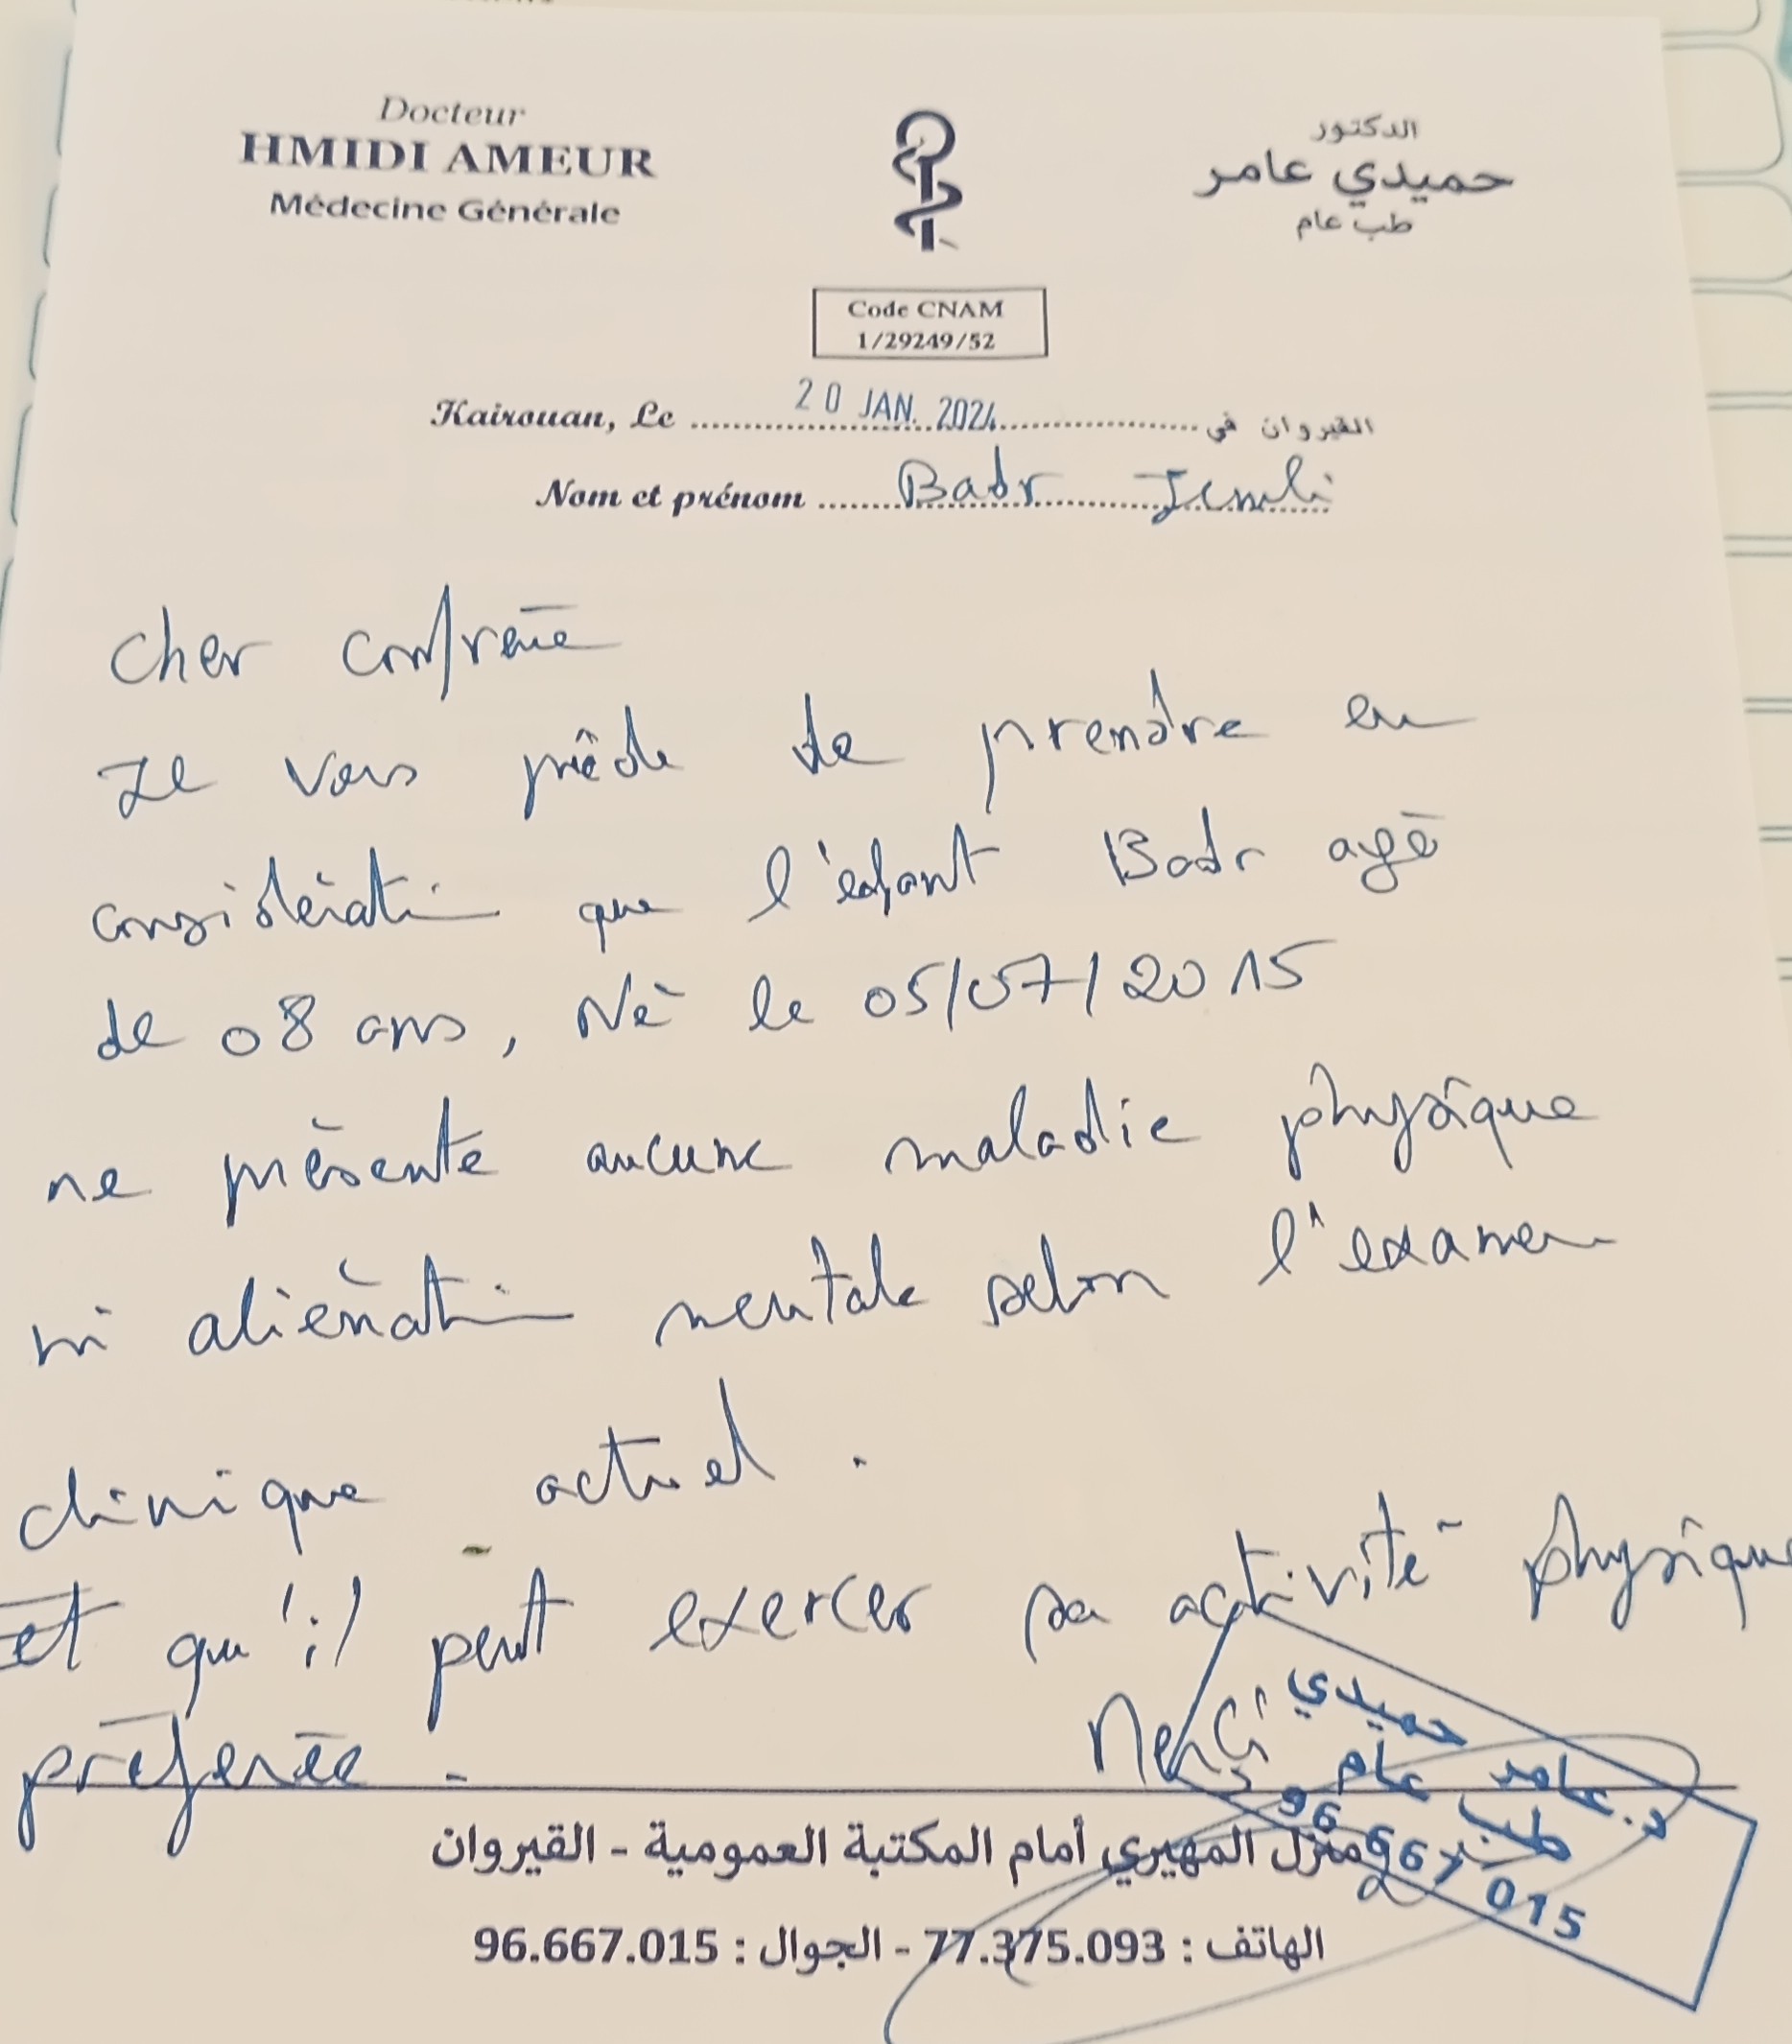 Docteur
HMIDI AMEUR
Médecine Générale
الدكتور
حميدي عامر
طب عام
Code CNAM
1/29249/52
Kairouan, Le 20 JAN. 2024 القيروان في
Nom et prénom Badr Jemli
Cher confrère
Je vous prie de de prendre en
considération que l'enfant Badr agé
de 08 ans, Né le 05/07/2015
ne présente aucune maladie physique
ni aliénation mentale selon l'examen
clinique actuel.
et qu'il peut exercer sa activité physique
préférée - Merci
حميدي
د. عامر
طب عام
96 667 015
منزل المهيري أمام المكتبة العمومية - القيروان
الهاتف : 77.375.093 - الجوال : 96.667.015